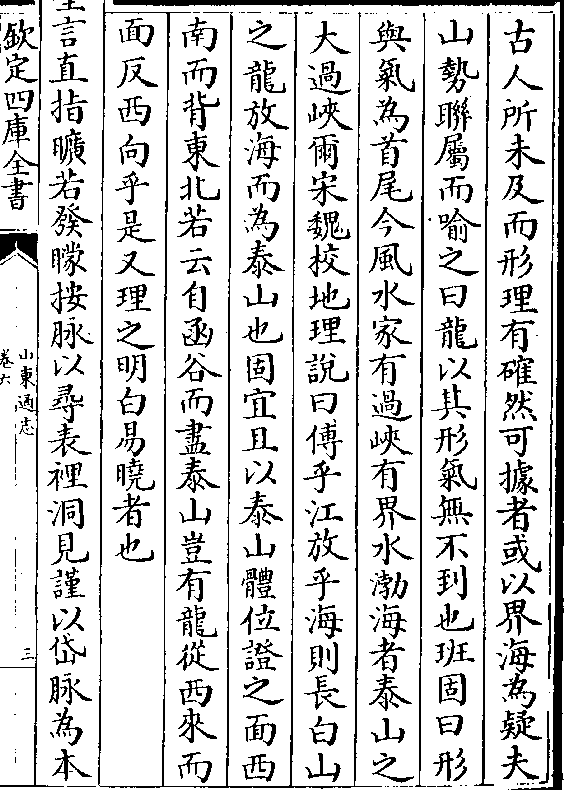 古人所未及而形理有確然可據者或以界海為疑夫
山勢聯屬而喻之曰龍以其形氣無不到也班固曰形
與氣為首尾今風水家有過峽有界水渤海者泰山之
大過峽爾宋魏校地理說曰傅乎江放乎海則長白山
之龍放海而為泰山也固宜且以泰山體位證之面西
南而背東北若云自函谷而盡泰山豈有龍從西來而
面反西向乎是又理之明白易曉者也
言直指曠若發矇按脉以尋表裡洞見謹以岱脉為本
欽定四庫全書
山東通志
卷六
三